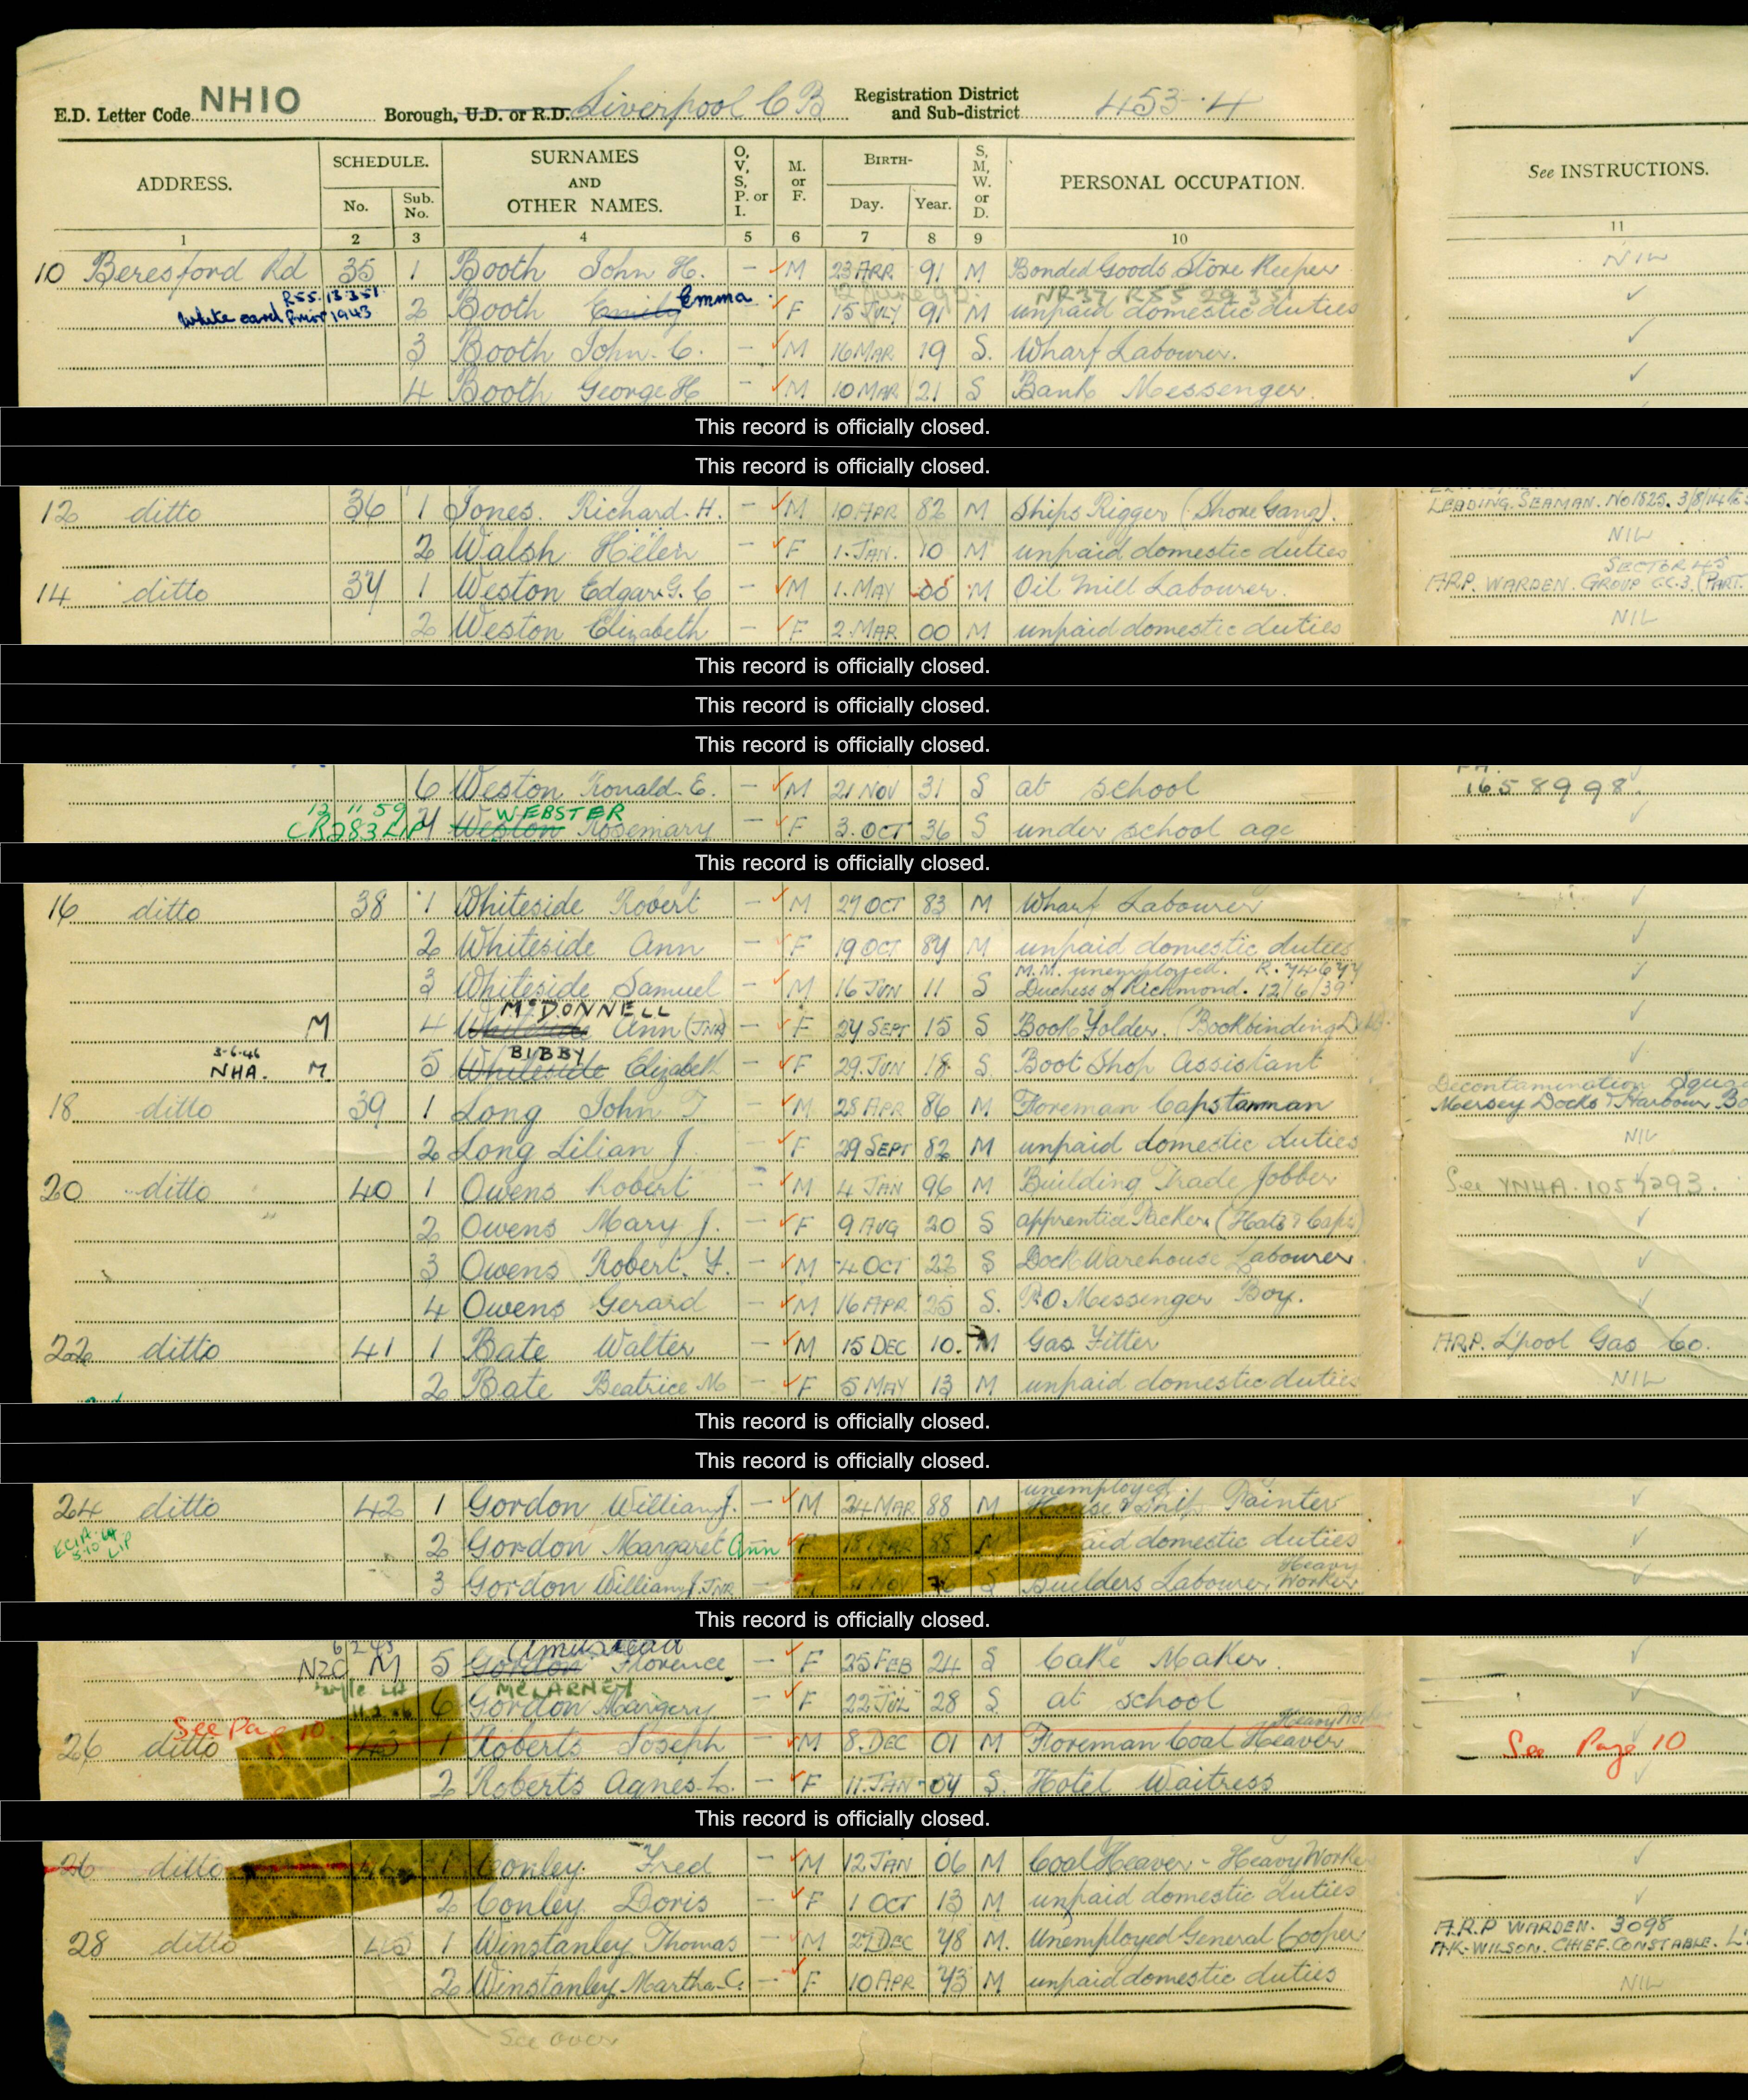 E.D. Letter Code NH10 Borough, U.D. or R.D. Liverpool C B Registration District and Sub-district 453·4
ADDRESS. SCHEDULE. No. Sub. No. SURNAMES AND OTHER NAMES. O, V, S, P. or I. M. or F. BIRTH- Day. Year. S, M, W. or D. PERSONAL OCCUPATION. See INSTRUCTIONS.
1 2 3 4 5 6 7 8 9 10 11
10 Beresford Rd 35 1 Booth John H. – M 23 APR 91 M Bonded Goods Store Keeper NIL
R55. 13 3 51 NR37 R55 29 3
White card Prior 1943 2 Booth Emily Emma F 15 JULY 91 M unpaid domestic duties
3 Booth John. C. – M 16 MAR 19 S. Wharf Labourer.
4 Booth George H – M 10 MAR 21 S Bank Messenger.
This record is officially closed.
This record is officially closed.
12 ditto 36 1 Jones. Richard. H. – M 10 APR 82 M Ships Rigger (Shore Gang). LEADING. SEAMAN. No 1825. 3/8/14
2 Walsh Helen – F 1. JAN. 10 M unpaid domestic duties NIL
SECTOR 45
14 ditto 37 1 Weston Edgar. G. C – M 1. MAY 00 M Oil Mill Labourer. A.R.P. WARDEN. GROUP CC.3. (PART.
2 Weston Elizabeth – F 2. MAR 00 M unpaid domestic duties NIL
This record is officially closed.
This record is officially closed.
This record is officially closed.
6 Weston Ronald. E. – M 21 NOV 31 S at school 1658998.
13 11 59 WEBSTER
CR283 LIP 7 Weston Rosemary – F 3. OCT 36 S under school age
This record is officially closed.
16 ditto 38 1 Whiteside Robert – M 27 OCT 83 M Wharf Labourer
2 Whiteside Ann – F 19 OCT 84 M unpaid domestic duties
M.M. unemployed. R. 74677
3 Whiteside Samuel – M 16 JUN 11 S Duchess of Richmond. 12/6/39
McDONNELL
M 4 Whiteside Ann (JNR) – F 24 SEPT 15 S Book Folder. (Bookbinding
3-6-46 BIBBY
NHA. M. 5 Whiteside Elizabeth – F 29. JUN 18 S. Boot Shop Assistant
Decontamination Squad
18 ditto 39 1 Long John T – M 28 APR 86 M Foreman Capstanman Mersey Docks & Harbour Bo
2 Long Lilian J. – F 29 SEPT 82 M unpaid domestic duties NIL
20 ditto 40 1 Owens Robert – M 4 JAN 96 M Building Trade Jobber See YN4A. 105
2 Owens Mary J. – F 9 AUG 20 S apprentice Packer (Hats & Caps)
3 Owens Robert. F. – M 4 OCT 22 S Dock Warehouse Labourer
4 Owens Gerard – M 16 APR 25 S. P.O. Messenger Boy.
22 ditto 41 1 Bate Walter – M 15 DEC 10. M Gas Fitter A.R.P. Lpool Gas Co.
2 Bate Beatrice M – F 5 MAY 13 M unpaid domestic duties NIL
This record is officially closed.
This record is officially closed.
unemployed
24 ditto 42 1 Gordon William J. – M 24 MAR 88 M House & Ship Painter
2 Gordon Margaret Ann F 18 MAR 88 M unpaid domestic duties
Heavy
3 Gordon William J. JNR – M S Builders Labourer, Worker
This record is officially closed.
NZC M 5 Gordon Florence – F 25 FEB 24 S Cake Maker.
MCLARNEY
6 Gordon Margery – F 22 JUL 28 S. at school
See Page 10 Heavy Worker
26 ditto 43 1 Roberts Joseph – M 8. DEC 01 M Foreman Coal Heaver See Page 10
2 Roberts Agnes. L. – F 11. JAN 04 S. Hotel Waitress
This record is officially closed.
26 ditto 1 Conley. Fred – M 12 JAN 06 M Coal Heaver - Heavy Worker
2 Conley. Doris – F 1 OCT 13 M unpaid domestic duties
A.R.P WARDEN. 3098
28 ditto 45 1 Winstanley. Thomas – M 27 DEC 78 M. Unemployed General Cooper A.K. WILSON. CHIEF. CONSTABLE. L
2 Winstanley. Martha. C. – F 10 APR 73 M unpaid domestic duties NIL
See over